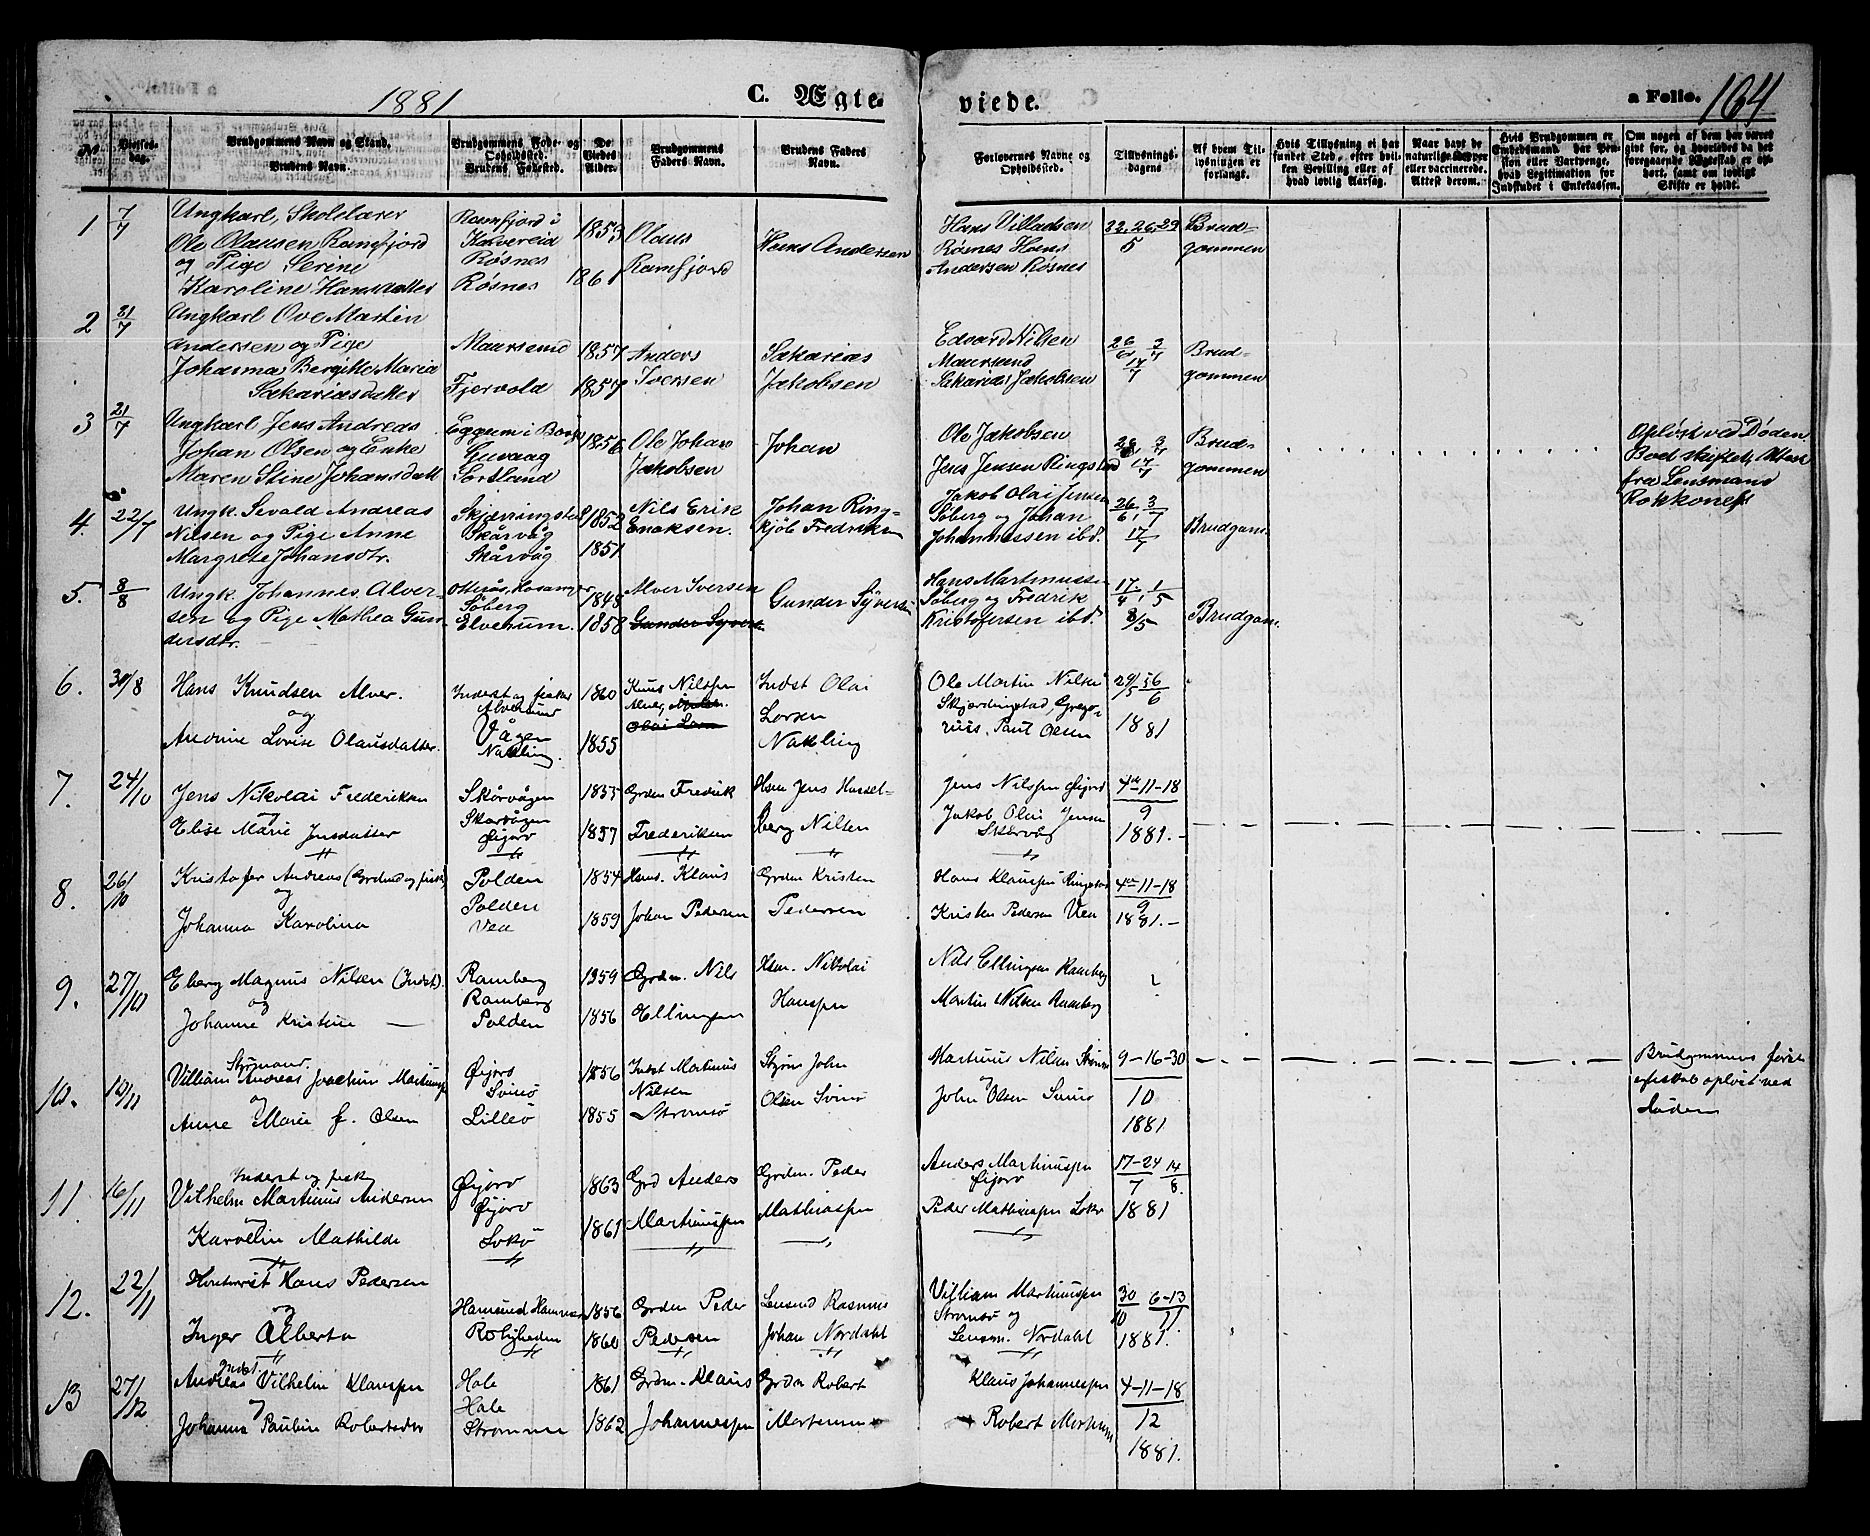 1881
C. Ægte-
viede.
a Folio. 164
No.
Vielses-dag.
Brudgommens Navn og Stand.
Brudens Navn.
Brudgommens Føde- og Opholdssted.
Brudens Fødested.
De Viedes Alder.
Brudgommens Faders Navn.
Brudens Faders Navn.
Forlovernes Navne og Opholdssted.
Tillysnings-dagene
Af hvem Tillysningen er forlangt.
Hvis Tillysning ei har fundet Sted, efter hvilken Bevilling eller af hvad lovlig Aarsag.
Naar havt de naturlige Kopper eller vaccinerede. Attest derom.
Hvis Brudgommen er Embedsmand, har Pension eller Vartpenge, hvad Legitimation for Indskudet i Enkekassen.
Om nogen af dem har været gift før, og hvorledes da det foregaaende Ægteskab er ophørt, samt om lovligt Skifte er holdt.
1 7/7 Ungkarl, Skolelærer Ramfjord i 1853 Olaus Hans Andersen Hans Villadsen 22. 26. 29 Brud-
Ole Olausen Ramfjord Kalvereid Ramfjord Røsnes Hans 5 gommen
og Pige Serine Røsnes 1861 Andersen Røsnes
Karoline Hansdatter Røsnes
2 21/7 Ungkarl Ove Martin
Andersen og Pige Maursund 1857 Anders Sakarias Edvard Nilsen 26/6, 3/7 Brud-
Johanna Bergitte Maria Iversen Jakobsen Maursund 17/7 gommen
Sakariasdatter Fjervold 1857 Sakarias Jakobsen
3 21/7 Ungkarl Jens Andreas Eggum i Borge 1856 Ole Johan Johan Ole Jakobsen 26, 3/7 Brud- Opløst ved Døden
Johan Olsen og Enke Guvaag Jakobsen Jens Jensen Ringstad 17/7 gommen
Maren Stine Johansdatt Sortland fra Lensmand
4. 22/7 Ungk. Sevald Andreas 1852 Nils Erik Johan Ring- Jakob Olai Jensen 26/6, 3/7 Brudgom.
Nilsen og Pige Anne Skårvåg Enoksen. kjøb Fredriksen Søberg og Johan
Margrete Johansdtr. Skårvåg 1851 Johannessen ibd. 17/7
5. 8/8 Ungk. Johannes Alver- 1848 Alver Iversen Gunder Syversen Hans Martinussen 17/4, 1/5 Brudgom.
sen og Pige Mathea Gun- Søberg Gunder Syvers. Søberg og Fredrik
dersdtr. Elverum. 1858 Kristofersen ibd. 8/5
6. 30/8 Hans Knudsen Alver. Inderst og fisker 1860 Knud Nilssen Indst Olai Ole Martin Nilsen 29/5
og Vågen Alver Larsen Skjærdingstad, Grego-
Andrine Lovise Olausdatter. Nakling. 1855 Olai Larsen Nakling rius Paul Olsen 1881
7. 24/10 Jens Nikolai Frederiksen Skårvågen 1855 Grdm Fredrik Hsm Jens Hassel- Jens Nilssen Øijord 4de-11-18
og Skårvågen Jakob Olai Jensen 9
Elise Marie Jensdatter Øijord 1857 Frederiksen berg Nilsen Skårvåg 1881.
8. 26/10 Kristofer Andreas (Grdmd og fisk) Polden 1854 Hsm. Klaus Grdm Kristen Hans Klaussen Ringstad 4de-11-18
og Polden 9
Johanna Karolina Vea 1859 Johan Pedersen Pedersen Kristen Pedersen Vea 1881.
9. 27/10 Eberg Magnus Nilsen (Indst). Ramberg 1859 Grdm. Nils Hsm. Nikolai Nils Ellingsen Ramberg
og Ramberg
Johanne Kristine — Polden 1856 Ellingsen Hanssen Martin Nilsen Ramberg
10. 10/11 Styrmand. Øijord 1856 Indst Martinus Styrm John Martinus Nilsen 9-16-30 Brudgommens første
Villiam Andreas Joachim Martinussen Svinø Nilsen 10 ægteskab opløst ved
og døden
Anne Marie f. Olsen Lillø 1855 Strømsø Olsen Svinø John Olsen Svinø 1881
11. 16/11 Inderst og fisk Øijord 1863 Grd Anders Grdm. Peder Anders Martinussen 17-24/7 14/8.
Vilhelm Martinus Andersen Øijord Øijord
og
Karoline Mathilde Lokø 1861 Martinussen Mathiassen Peder Mathiassen Lokø 1881
12. 22/11 Hans Pedersen
og Hamsund Hammerø 1856 Grdm Peder Lensmd Rasmus Villiam Martinussen 30/10 6-13/11
Inger Alberta Roligheden 1860 Pedersen Johan Nordahl Strømsø og
Lensm. Nordahl 1881.
13 27/12 Indst Hole 1861 Grdm. Klaus Grdm Robert Klaus Johannessen 4-11-18
Andreas Vilhelm Klaussen Hole 12
og
Johanna Pauline Robertsdtr Strømme 1862 Johannessen Martinussen Robert Martinussen 1881.